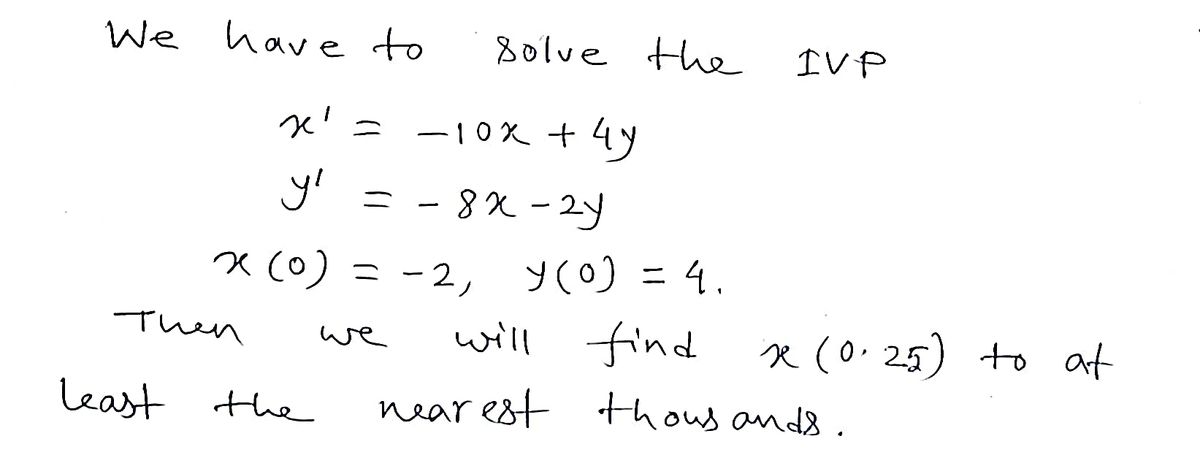 We have to solve the IVP
x' = -10x + 4y
y' = -8x - 2y
x(0) = -2, y(0) = 4.
Then we will find x(0.25) to at
least the nearest thousands.